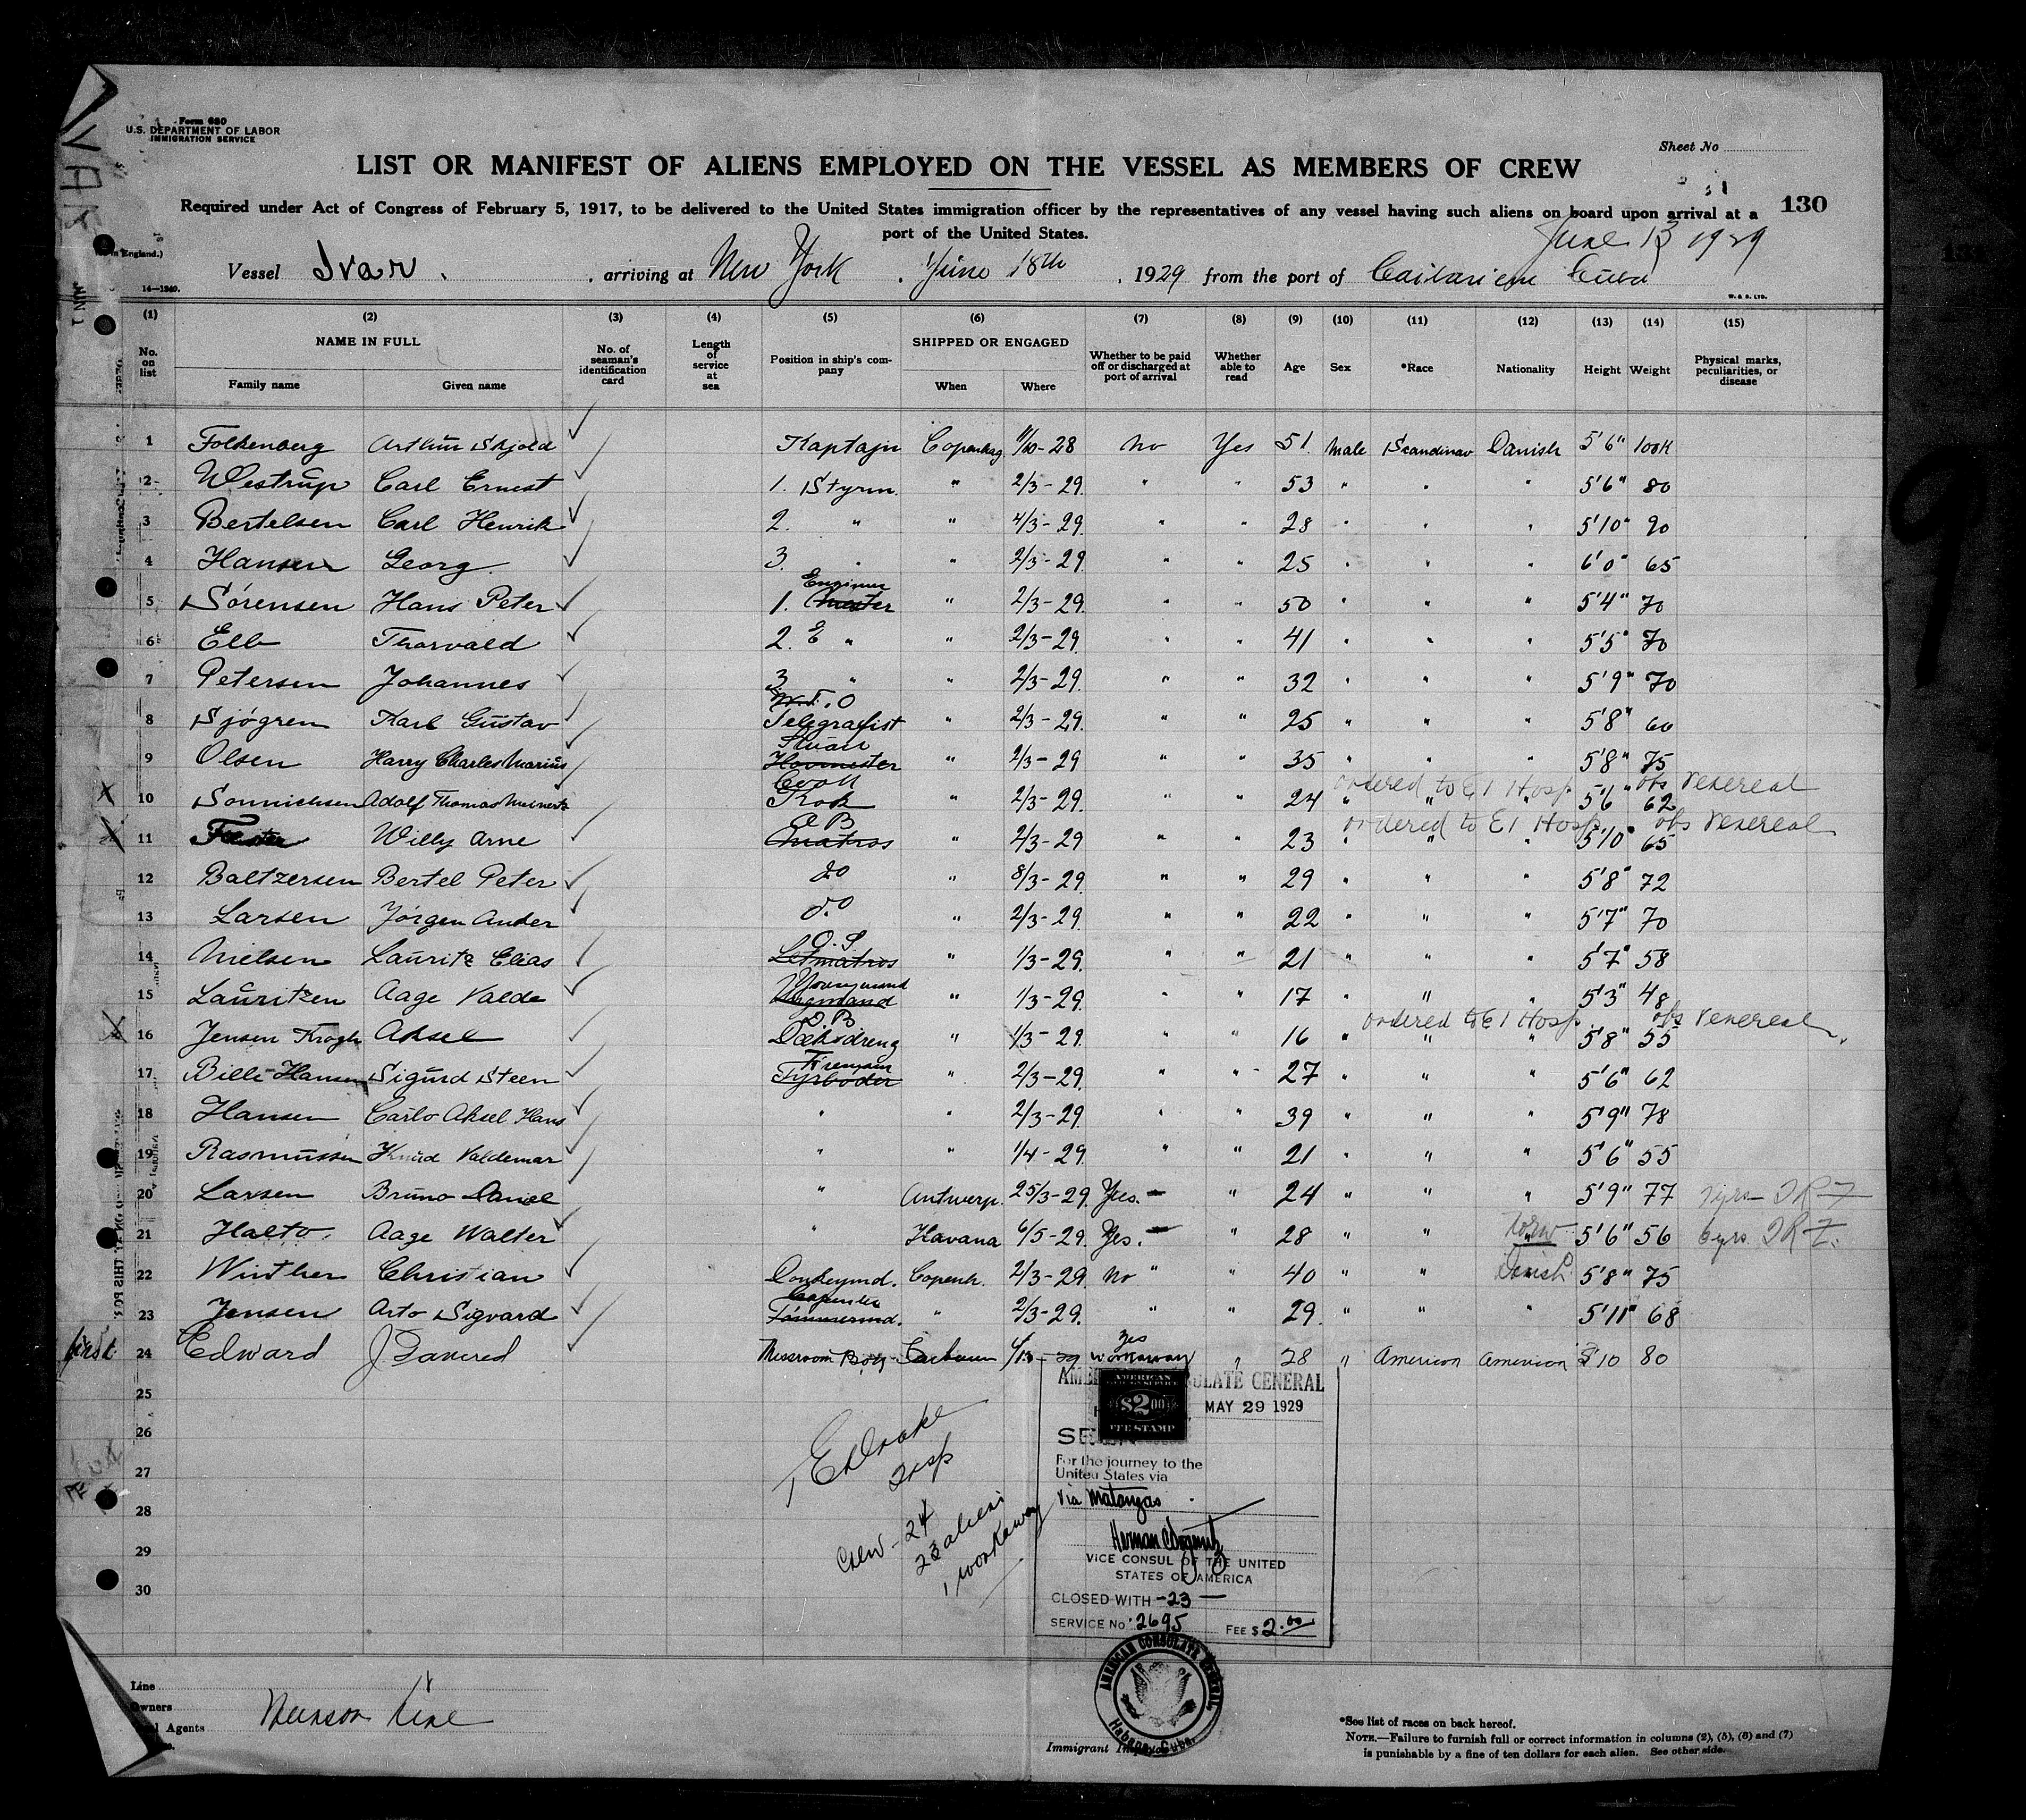 Form 680
U.S. DEPARTMENT OF LABOR
IMMIGRATION SERVICE
Sheet No
LIST OR MANIFEST OF ALIENS EMPLOYED ON THE VESSEL AS MEMBERS OF CREW
130
Required under Act of Congress of February 5, 1917, to be delivered to the United States immigration officer by the representatives of any vessel having such aliens on board upon arrival at a
port of the United States.
June 13 1929
Vessel Ivar, arriving at New York, June 18th, 1929 from the port of Caibarien Cuba
14—1240. W. & S. LTD.
(1) (2) (3) (4) (5) (6) (7) (8) (9) (10) (11) (12) (13) (14) (15)
No. on list NAME IN FULL Family name Given name No. of seaman's identification card Length of service at sea Position in ship's company SHIPPED OR ENGAGED When Where Whether to be paid off or discharged at port of arrival Whether able to read Age Sex *Race Nationality Height Weight Physical marks, peculiarities, or disease
1 Folkenberg Arthur Skjold Kaptajn Copenhag 28 No Yes 51 Male Scandinav Danish 5'6" 100K
2 Westrup Carl Ernest 1. Styrm. " 2/3-29. " " 53 " " " 5'6" 80
3 Bertelsen Carl Henrik 2. " " 4/3-29. " " 28 " " " 5'10" 90
4 Hansen Georg 3. " " 2/3-29. " " 25 " " " 6'0" 65
5 Sörensen Hans Peter 1. Engineer " 2/3-29. " " 50 " " " 5'4" 70
6 Elb Thorvald 2. E " " 2/3-29. " " 41 " " " 5'5" 70
7 Petersen Johannes 3 " " 2/3-29. " " 32 " " " 5'9" 70
8 Sjögren Karl Gustav Telegrafist " 2/3-29. " " 25 " " " 5'8" 60
9 Olsen Harry Charles Marius Stuart Hovmester " 2/3-29 " " 35 " " " 5'8" 75
ordered to EI Hosp obs Venereal
10 Sonnichsen Adolf Thomas Cook Kok " 2/3-29. " " 24 " " " 5'6" 62
ordered to EI Hosp obs Venereal
11 Willy Arne AB Matros " 2/3-29 " " 23 " " " 5'10" 65
12 Baltzersen Bertel Peter do " 8/3-29. " " 29 " " " 5'8" 72
13 Larsen Jörgen Ander do " 2/3-29. " " 22 " " " 5'7" 70
14 Nielsen Lauritz Elias O.S. Letmatros " 1/3-29. " " 21 " " " 5'7" 58
15 Lauritzen Aage Valde Youngmand " 1/3-29. " " 17 " " " 5'3" 48
ordered to EI Hosp obs Venereal
16 Jensen Krogh Aksel D.B Dæksdreng " 1/3-29. " " 16 " " " 5'8" 55
17 Bille-Hansen Sigurd Steen Fireman Fyrboder " 2/3-29. " " 27 " " " 5'6" 62
18 Hansen Carlo Aksel Hans " " 2/3-29. " " 39 " " " 5'9" 78
19 Rasmussen Knud Valdemar " " 1/4-29. " " 21 " " " 5'6" 55
20 Larsen Bruno Daniel " Antwerp. 25/3-29. Yes. " 24 " " " 5'9" 77
21 Halto Aage Walter " Havana 6/5-29. Yes. " 28 " " 5'6" 56 6 yrs
22 Winther Christian Donkeymd. Copenh. 2/3-29. No " " 40 " " Danish 5'8" 75
23 Jensen Arto Sigvard Carpenter Tömmermd. " 2/3-29. " " 29. " " " 5'11" 68
24 Edward J Messroom Boy 29 Yes Workaway " 28 " American American 5 10 80
25
26
27
28
29
30
E Drake
Insp
Crew - 24
23 aliens
1 workaway
CONSULATE GENERAL
AMERICAN $2.00 FEE STAMP
MAY 29 1929
For the journey to the
United States via
Via Matanzas
VICE CONSUL OF THE UNITED
STATES OF AMERICA
CLOSED WITH -23-
SERVICE No 2695 FEE $ 2.00
AMERICAN CONSULATE GENERAL
Habana, Cuba
Line
Owners
Agents
Munson Line
Immigrant
*See list of races on back hereof.
NOTE.—Failure to furnish full or correct information in columns (2), (5), (6) and (7)
is punishable by a fine of ten dollars for each alien. See other side.